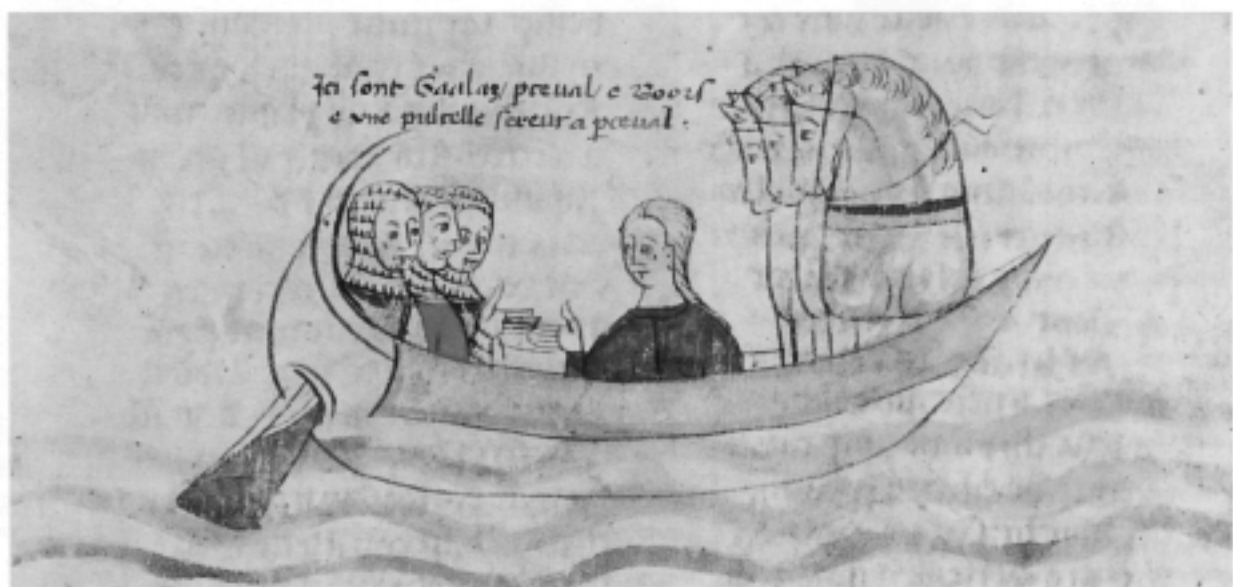 Ici sont Gaalaz pceual e Boors
e une pulcelle sereur a pceual.